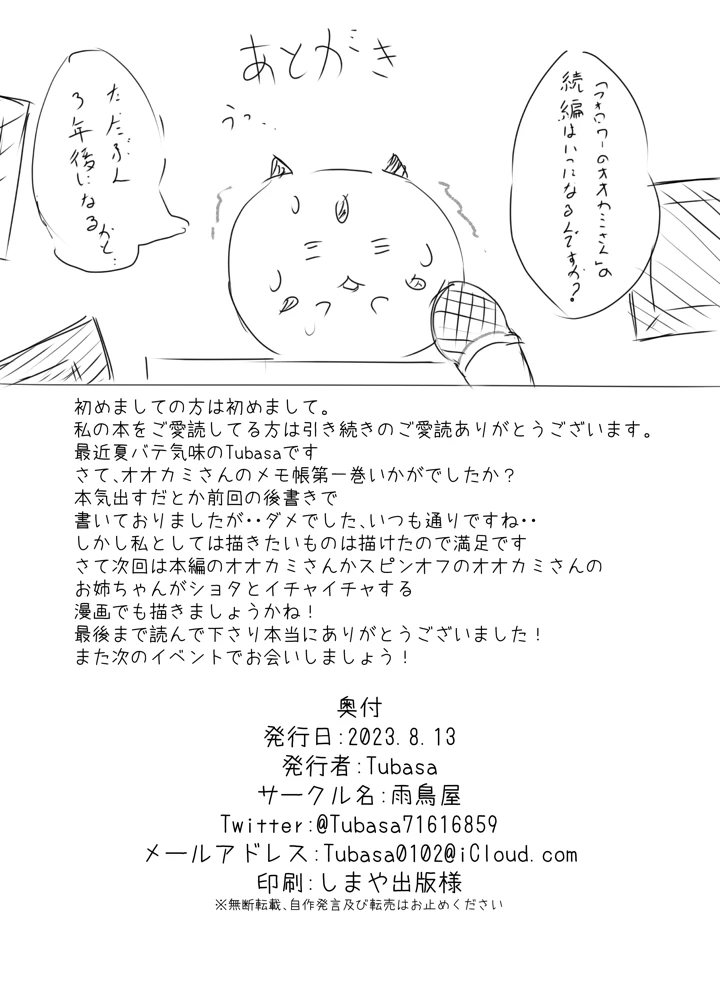 あとがき
「フォロワーのオオカミさん」の
続編はいつになるんですか?
うっ..
た、たぶん
3年後になるかと…
初めましての方は初めまして。
私の本をご愛読してる方は引き続きのご愛読ありがとうございます。
最近夏バテ気味のTubasaです
さて、オオカミさんのメモ帳第一巻いかがでしたか?
本気出すだとか前回の後書きで
書いておりましたが‥ダメでした、いつも通りですね‥
しかし私としては描きたいものは描けたので満足です
さて次回は本編のオオカミさんかスピンオフのオオカミさんの
お姉ちゃんがショタとイチャイチャする
漫画でも描きましょうかね!
最後まで読んで下さり本当にありがとうございました!
また次のイベントでお会いしましょう!
奥付
発行日:2023.8.13
発行者:Tubasa
サークル名:雨鳥屋
Twitter:@Tubasa71616859
メールアドレス:Tubasa0102@iCloud.com
印刷:しまや出版様
※無断転載、自作発言及び転売はお止めください